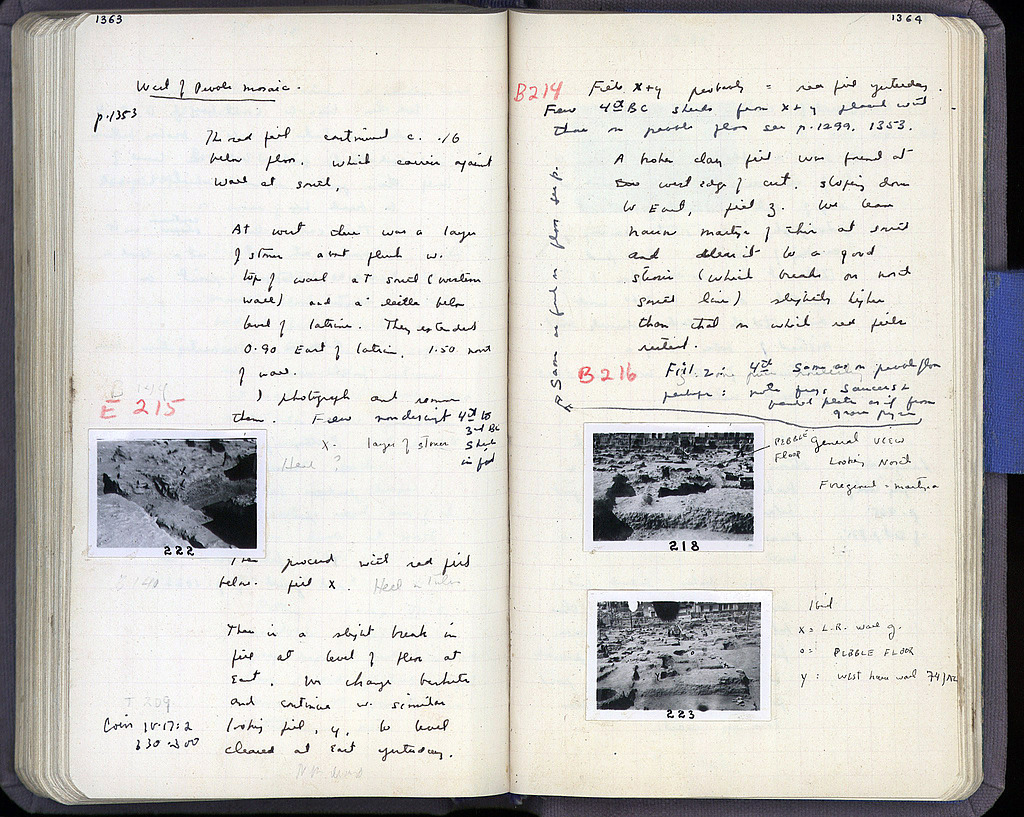 1363
West of Pebble Mosaic.
p. 1353
The red fill continued c. .16
below floor, which carries against
wall at south.
At west there was a layer
of stones about flush w.
top of wall at south (western
wall) and a little below
level of latrine. They extended
0.90 East of latrine, 1.50 north
of wall.
B 144
E 215
I photograph and remove
them. Few nondescript 4th to
3rd BC
sherds
in fact
x - layer of stones
Head ?
222
Then proceed with red fill
below. fill x.
140
There is a slight break in
fill at level of floor at
East. We change baskets
and continue w. similar
T 209
Coin 15-17:2
330-300
looking fill, y, to level
cleared at East yesterday.
1364
B214
Fills x+y probably = red fill yesterday.
Few 4th BC sherds from x+y placed with
those on pebble floor see p. 1299, 1353.
A broken clay fill was found at
west edge of cut, sloping down
to East, fill z. We leave
narrow martyr of this at south
and clear it to a good
stosis (which breaks on north
south line) slightly higher
than that on which red fills
rested.
B 216
Fill z: 4th Same as on pebble floor
perhaps: note frags. saucers &
as if from
Same as found on floor see p.
218
PEBBLE
FLOOR
General VIEW
Looking North
Foreground - martyr
223
Ibid
x = L.R. wall g.
o = PEBBLE FLOOR
y : West house wall 74/